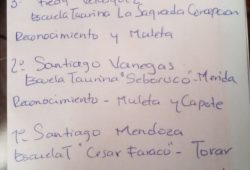 Escuela Taurina La Sagrada Concepcion
Reconocimiento y Muleta
2º Santiago Vanegas
Escuela Taurina "Seboruco" - Merida
Reconocimiento - Muleta y Capote
1º Santiago Mendoza
Escuela T "Cesar Faraco" - Tovar